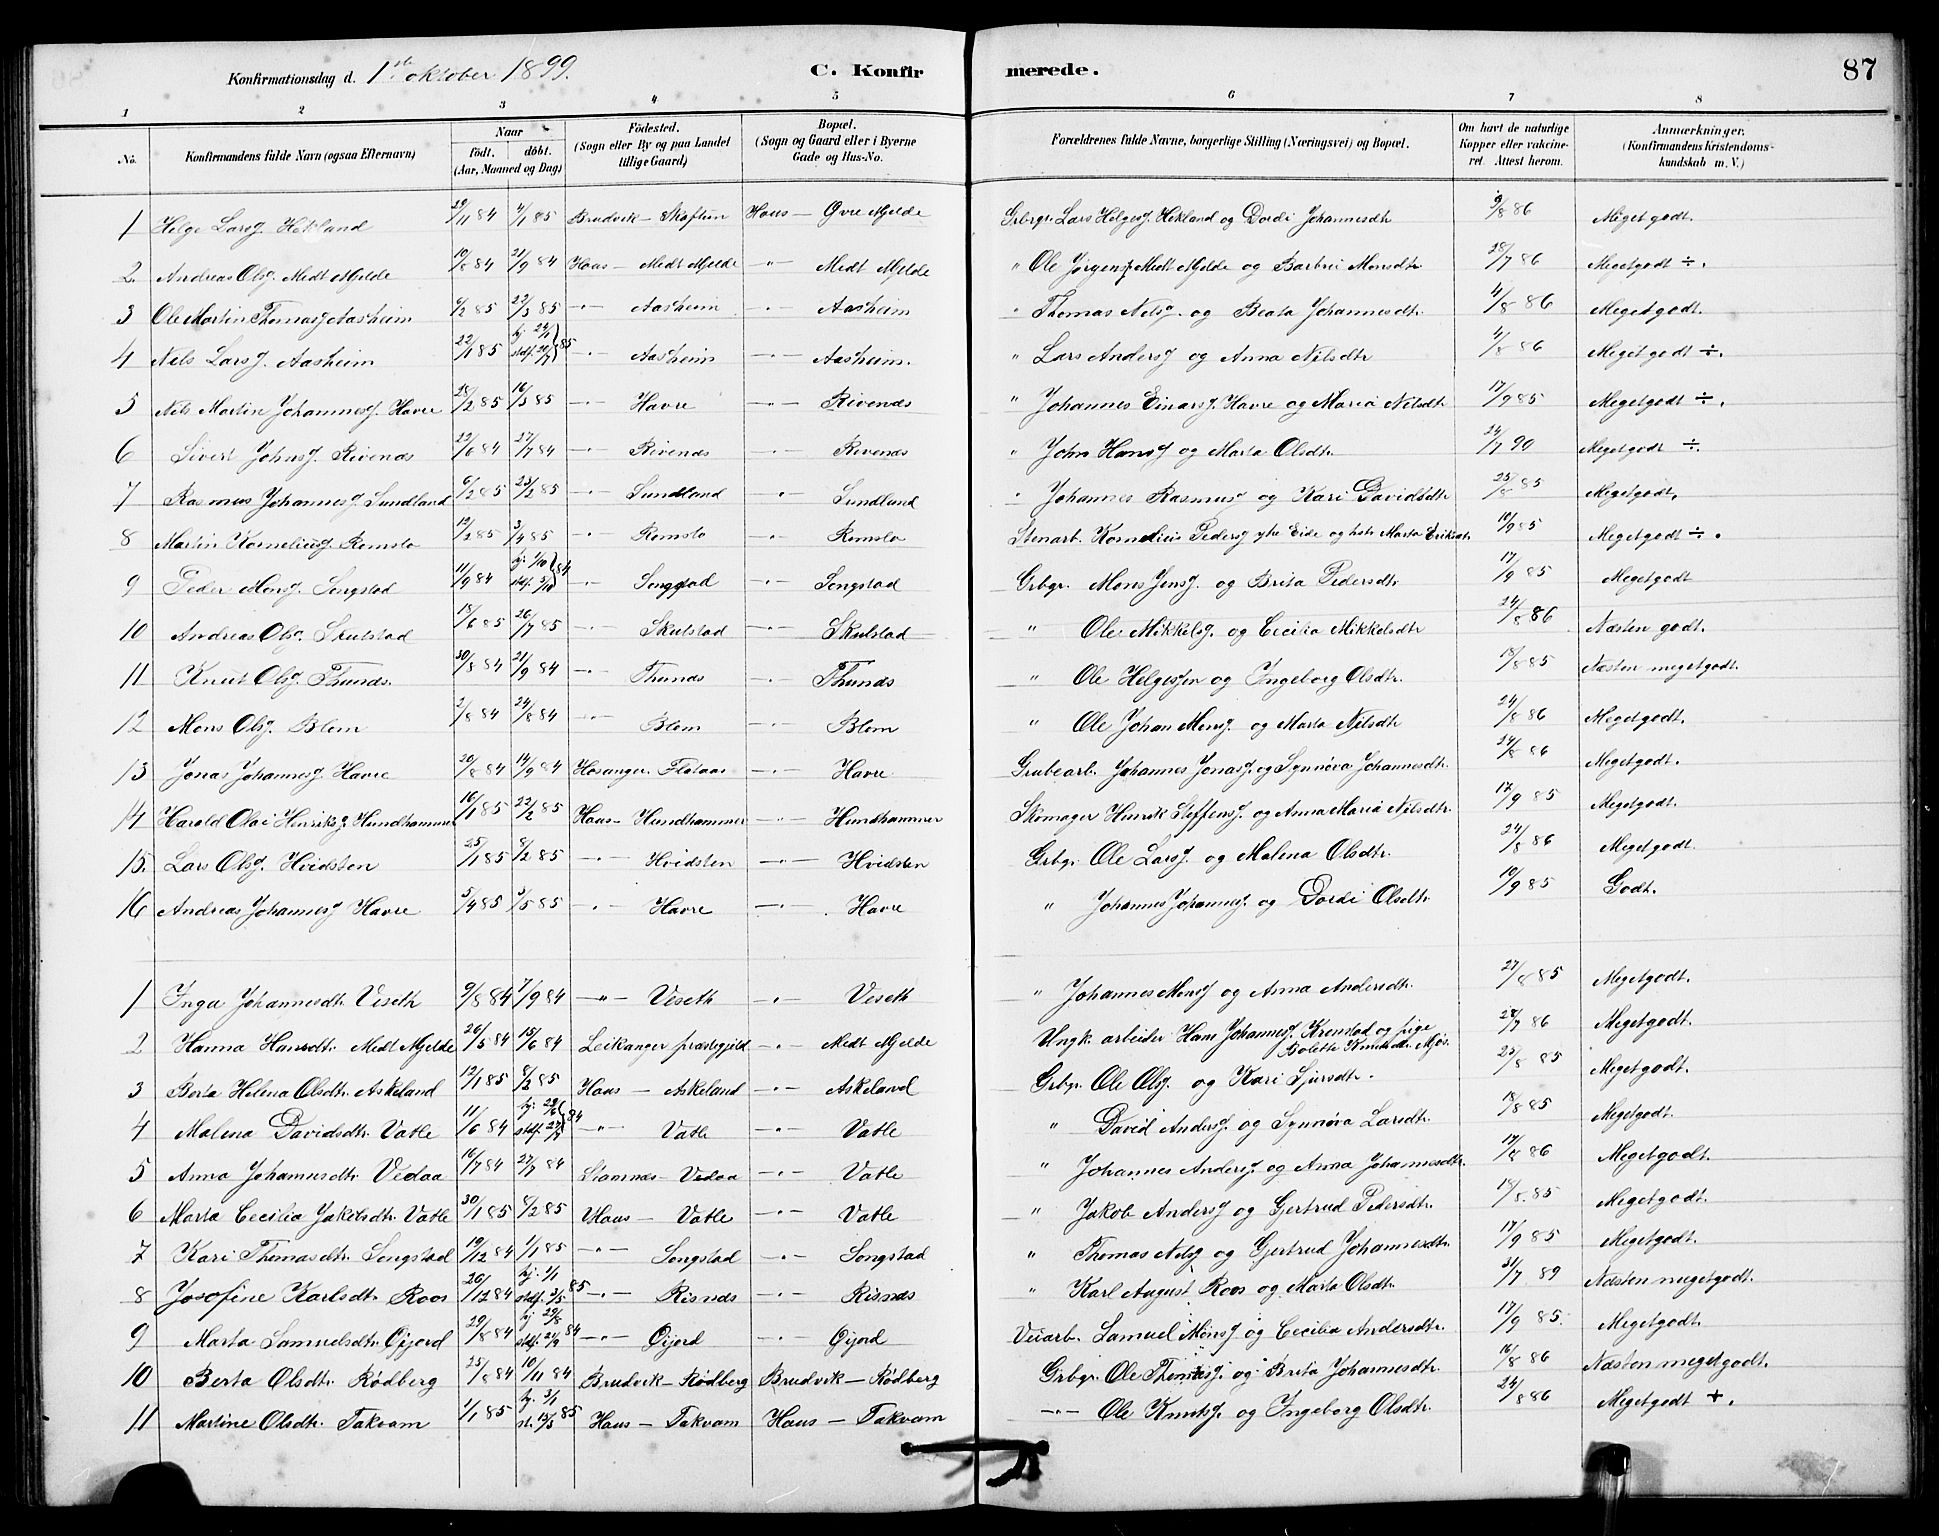 Konfirmationsdag d. 1ste oktober 1899.
C. Konfirmerede.
87
1 2 3 4 5 6 7 8
No. Konfirmandens fulde Navn (ogsaa Efternavn) Naar födt. döbt. (Aar, Maaned og Dag) Födested. (Sogn eller By og paa Landet tillige Gaard) Bopæl. (Sogn og Gaard eller i Byerne Gade og Hus-No. Forældrenes fulde Navne, borgerlige Stilling (Næringsvei) og Bopæl. Om havt de naturlige Kopper eller vakcineret. Attest herom. Anmærkninger. (Konfirmandens Kristendomskundskab m. V.)
1 Helge Larsj. Hekland 29/11 84 4/1 85 Brudvik — Skaftun Haus — Øvre Mjelde Grbgr. Lars Helgesj. Hekland og Dordi Johannesdtr 9/8 86 Megetgodt.
2. Andreas Olsj. Medt Mjelde 19/8 84 21/9 84 Haus — Medt Mjelde -"- Medt Mjelde " Ole Jørgensj. Medt Mjelde og Barbrei Monsdtr. 28/7 86 Megetgodt ÷.
3 Ole Martin Thomasj Aasheim 6/2 85 22/3 85 -"- Aasheim -"- Aasheim " Thomas Nelsj. og Beata Johannesdtr. 4/8 86 Megetgodt.
4 Nils Larsj. Aasheim 22/1 85 hj. 24/1 stdf. 20/7 85 -"- Aasheim -"- Aasheim. " Lars Andersj og Anna Nilsdtr 4/8 86 Meget godt ÷.
5 Nils Martin Johannesj. Havre 28/2 85 16/3 85 -"- Havre -"- Rivenæs " Johannes Einarsj. Havre og Maria Nilsdtr 17/9 85 Megetgodt ÷.
6 Sivert Johnsj. Rivenæs 29/6 84 27/7 84 -"- Rivenæs -"- Rivenæs " John Hansj og Marta Olsdtr. 24/7 90 Megetgodt ÷.
7 Rasmus Johannesj Sundland 6/2 85 23/2 85 -"- Sundland -"- Sundland " Johannes Rasmusj og Kari Davidsdtr 25/8 85 Megetgodt.
8 Martin Korneliusj. Romslo 12/2 85 3/4 85 -"- Romslo -"- Romslo Stenarb. Kornelius Pedersj ytre Eide og hstr Marta Eriksdt. 10/9 85 Megetgodt ÷.
9 Peder Monsj. Songstad 11/9 84 hj. 1/10 stdf. 5/10 84 -"- Songstad -"- Songstad Grbgr. Mons Jensj. og Brita Pedersdtr. 17/9 85 Megetgodt
10 Andreas Olsj. Skulstad 18/6 85 26/7 85 -"- Skulstad -"- Skulstad " Ole Mikkelsj. og Cecilia Mikkelsdtr 24/8 86 Næsten godt.
11 Knut Olsj. Thunæs. 30/8 84 21/9 84 -"- Thunæs -"- Thunæs " Ole Helgesjen og Ingeborg Olsdtr. 18/8 85 Næsten megetgodt.
12 Mons Olsj. Blom 2/8 84 24/8 84 -"- Blom -"- Blom " Ole Johan Monsj. og Marta Nilsdtr 24/8 86 Megetgodt.
13 Jonas Johannesj Havre 20/8 84 14/9 84 Hosanger Flataas -"- Havre Grubearb. Johannes Jonasj. og Synnøva Johannesdtr. 24/8 86 Megetgodt.
14 Harald Olai Henriksj. Hundhammer 16/1 85 22/2 85 Haus — Hundhammer -"- Hundhammer Skomager Henrik Steffensj. og Anna Maria Nilsdtr. 17/9 85 Megetgodt.
15. Lars Olsj. Hvidsten 25/1 85 8/2 85 -"- Hvidsten -"- Hvidsten Grbgr. Ole Larsj. og Malena Olsdtr. 24/8 86 Megetgodt.
16 Andreas Johannesj Havre 5/4 85 3/5 85 -"- Havre -"- Havre " Johannes Johannesj. og Dordi Olsdtr. 10/9 85 Godt.
1 Inga Johannesdtr. Veseth 9/8 84 7/9 84 -"- Veseth -"- Veseth " Johannes Monsj og Anna Andersdtr. 27/8 85 Megetgodt.
2 Hanna Hansdtr. Medt Mjelde 26/5 84 15/6 84 Leikanger præstegjæld -"- Medt Mjelde Ungk. arbeider Hans Johannesj. Kronstad og pige Bolette Knutsdtr. Mjøs. 28/7 86 Megetgodt.
3 Berta Helena Olsdtr. Askeland 12/1 85 8/2 85 Haus — Askeland -"- Askeland Grbgr. Ole Olsj. og Kari Sjursdtr. 25/8 85 Megetgodt.
4 Malena Davidsdtr. Vatle 11/6 84 hj. 29/6 stdf. 27/7 84 -"- Vatle -"- Vatle " David Andersj. og Synnøva Larsdtr. 18/8 85 Megetgodt.
5 Anna Johannesdtr. Vedaa 16/7 84 27/7 84 Stamnæs — Vedaa -"- Vatle " Johannes Andersj. og Anna Johannesdtr. 17/8 86 Megetgodt.
6 Marta Cecilia Jakobsdtr. Vatle 30/1 85 8/2 85 Haus — Vatle -"- Vatle " Jakob Andersj og Gertrud Pedersdtr. 18/8 85 Megetgodt.
7 Kari Thomasdtr. Songstad 19/12 84 1/1 85 -"- Songstad -"- Songstad " Thomas Nelsj og Gjertrud Johannesdtr. 17/9 85 Megetgodt.
8 Josofine Karlsdtr. Roos 20/12 84 hj. 1/1 stdf. 3/5 85 -"- Risnæs -"- Risnæs " Karl August Roos og Marta Olsdtr. 31/7 89 Næsten megetgodt.
9 Marta Samuelsdtr. Øijord 29/8 84 hj 29/8 stdf. 21/9 84 -"- Øijord -"- Øijord Veiarb. Samuel Monsj og Cecilia Andersdtr. 17/9 85. Megetgodt.
10 Berta Olsdtr. Rødberg 25/8 84 10/11 84 Brudvik — Rødberg Brudvik — Rødberg Grbgr. Ole Thomasj. og Brita Johannesdtr. 16/8 86 Næsten megetgodt.
11 Martine Olsdtr. Takvam 1/1 85 hj. 3/1 st. 15/3 85 Haus — Takvam Haus — Takvam -"- Ole Knutsj. og Ingeborg Olsdtr. 24/8 86 Megetgodt +.